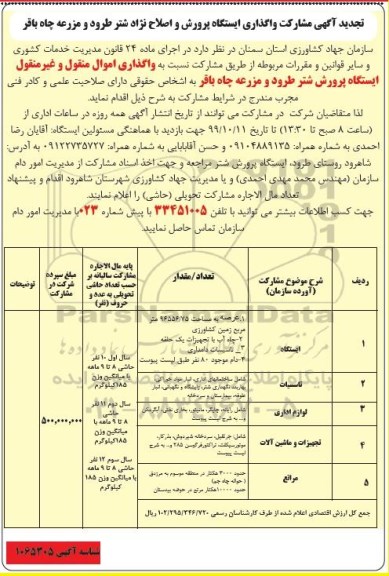 تجدید آگهی مشارکت واگذاری ایستگاه پرورش و اصلاح نژاد شتر طرود و مزرعه چاه باقر
سازمان جهاد کشاورزی استان سمنان در نظر دارد در اجرای ماده ۲۴ قانون مدیریت خدمات کشوری
و سایر قوانین و مقررات مربوطه از طریق مشارکت نسبت به واگذاری اموال منقول و غیرمنقول
ایستگاه پرورش شتر طرود و مزرعه چاه باقر به اشخاص حقوقی دارای صلاحیت علمی و کادر فنی
مجرب مندرج در شرایط مشارکت به شرح ذیل اقدام نماید.
لذا متقاضیان شرکت در مشارکت می توانند از تاریخ انتشار آگهی همه روزه در ساعات اداری از
(ساعت ۸ صبح تا ۱۳:۳۰) تا تاریخ ۹۹/۱۰/۱۱ جهت بازدید با هماهنگی مسئولین ایستگاه: آقایان رضا
احمدی به شماره همراه: ۰۹۱۰۴۸۸۹۱۳۵ و حسن آقابابایی به شماره همراه: ۰۹۱۲۲۷۳۵۷۲۷ به آدرس:
شاهرود روستای طرود، ایستگاه پرورش شتر مراجعه و جهت اخذ اسناد مشارکت از مدیریت امور دام
سازمان (مهندس محمد مهدی احمدی) و یا مدیریت جهاد کشاورزی شهرستان شاهرود اقدام و پیشنهاد
تعداد مال الاجاره مشارکت تحویلی (حاشی) را اعلام نمایند.
جهت کسب اطلاعات بیشتر می توانید با تلفن ۳۳۴۵۱۰۰۵ با پیش شماره ۰۲۳ با مدیریت امور دام
سازمان تماس حاصل نمایید.
ردیف
شرح موضوع مشارکت (آورده سازمان)
تعداد/مقدار
پایه مال الاجاره مشارکت سالیانه بر حسب تعداد حاشی تحویلی به عدد و حروف (نفر)
مبلغ سپرده شرکت در مشارکت
توضیحات
۱
ایستگاه
۱.عرصه به مساحت ۹۶۵۵۶/۷۵ متر
مربع زمین کشاورزی
۲-چاه آب با تجهیزات یک حلقه
۳_ تاسیسات دامداری
۴-دام موجود ۸۰ نفر طبق لیست پیوست
سال اول ۱۰ نفر
حاشی
۸ تا ۹ ماهه
با میانگین وزن
۱۸۵کیلوگرم
۲
تاسیسات
۳
لوازم اداری
سال دوم ۱۱ نفر
حاشی
۸ تا ۹ ماهه با
میانگین وزن
۱۸۵کیلوگرم
۵۰۰,۰۰۰,۰۰۰
۴
تجهیزات و ماشین آلات
۵
مراتع
حدود ۳۰۰۰ هکتار در منطقه موسوم به مرزدق
( حواله چاه جم)
حدود ۱۱۰۰۰هکتار مرتع در حوضه بیدستان
سال سوم ۱۲ نفر
حاشی ۸ تا ۹ ماهه
با میانگین وزن ۱۸۵
کیلوگرم
جمع کل ارزش اقتصادی اعلام شده از طرف کارشناسان رسمی ۱۰۲/۲۹۵/۳۴۶/۷۲۰ ریال
شناسه آگهی ۱۰۶۵۳۰۵